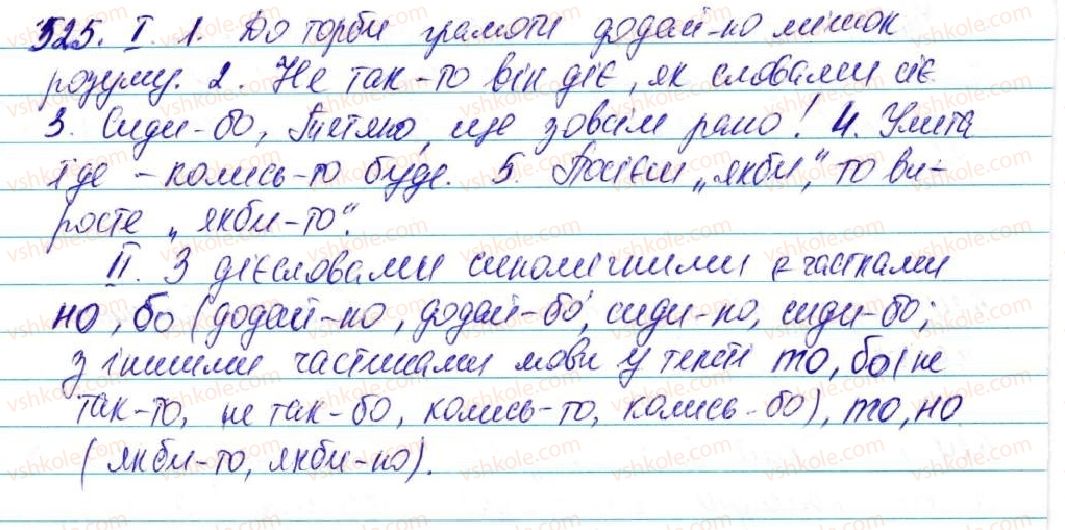 525. I. 1. До торби грамоти додай-но мішок
розуму. 2. Не так-то він діє, як словами сіє
3. Сиди-бо, Тетяно, ще зовсім рано! 4. Улита
їде - колись-то буде. 5. Посієш „якби", то ви-
росте „якби-то".
II. З дієсловами синонімічними є частками
но, бо (додай-но, додай-бо, сиди-но, сиди-бо;
з іншими частинами мови у тексті то, бо (не
так-то, не так-бо, колись-то, колись-бо), то, но
(якби-то, якби-но).